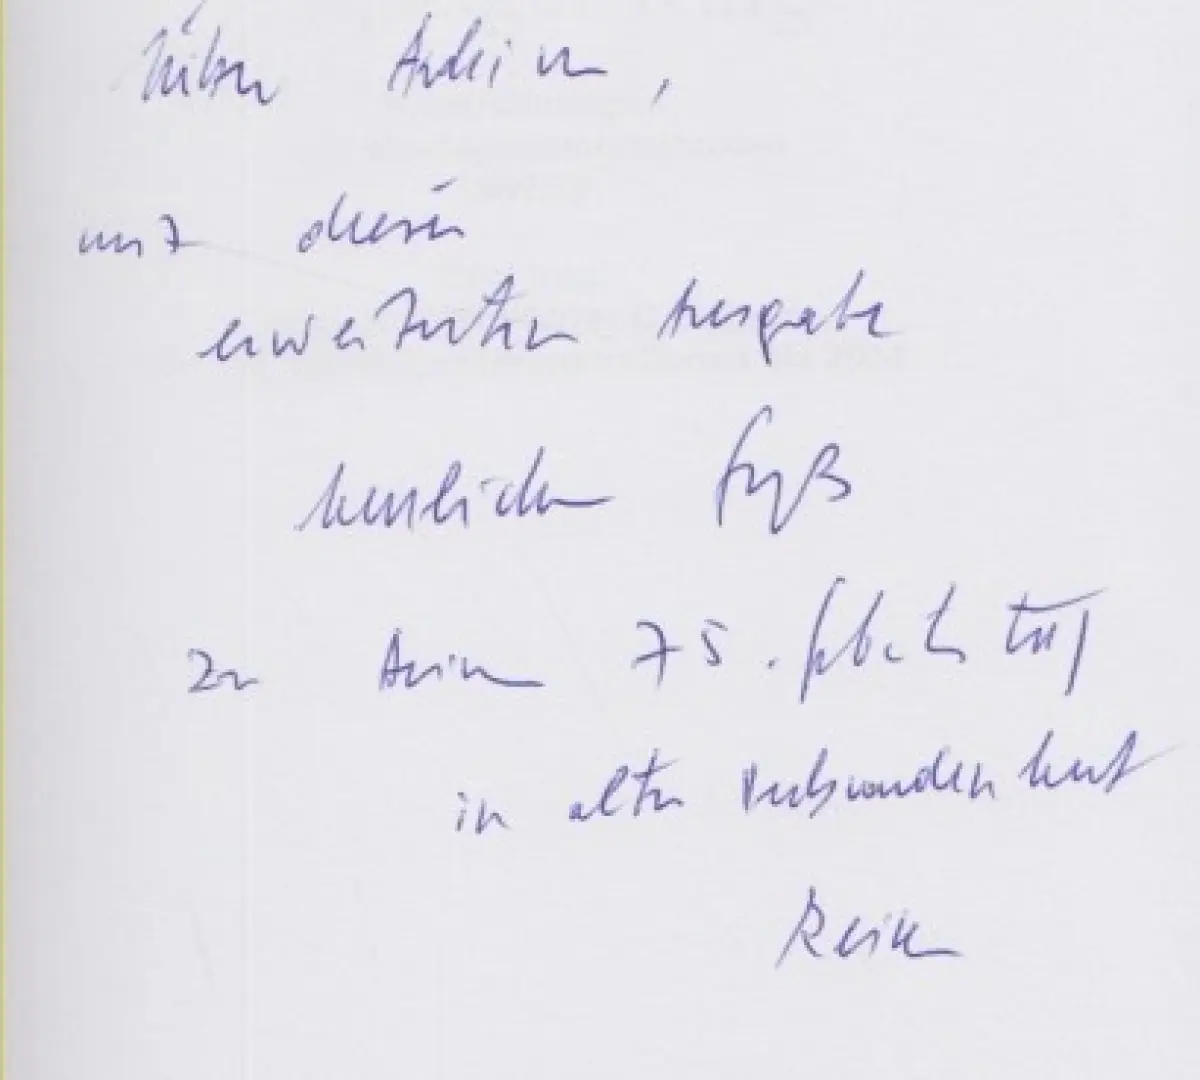 Lieber Achim,
mit dieser
erweiterten Ausgabe
herzlichen Gruß
zu Deinem 75. Geburtstag
in alter Verbundenheit